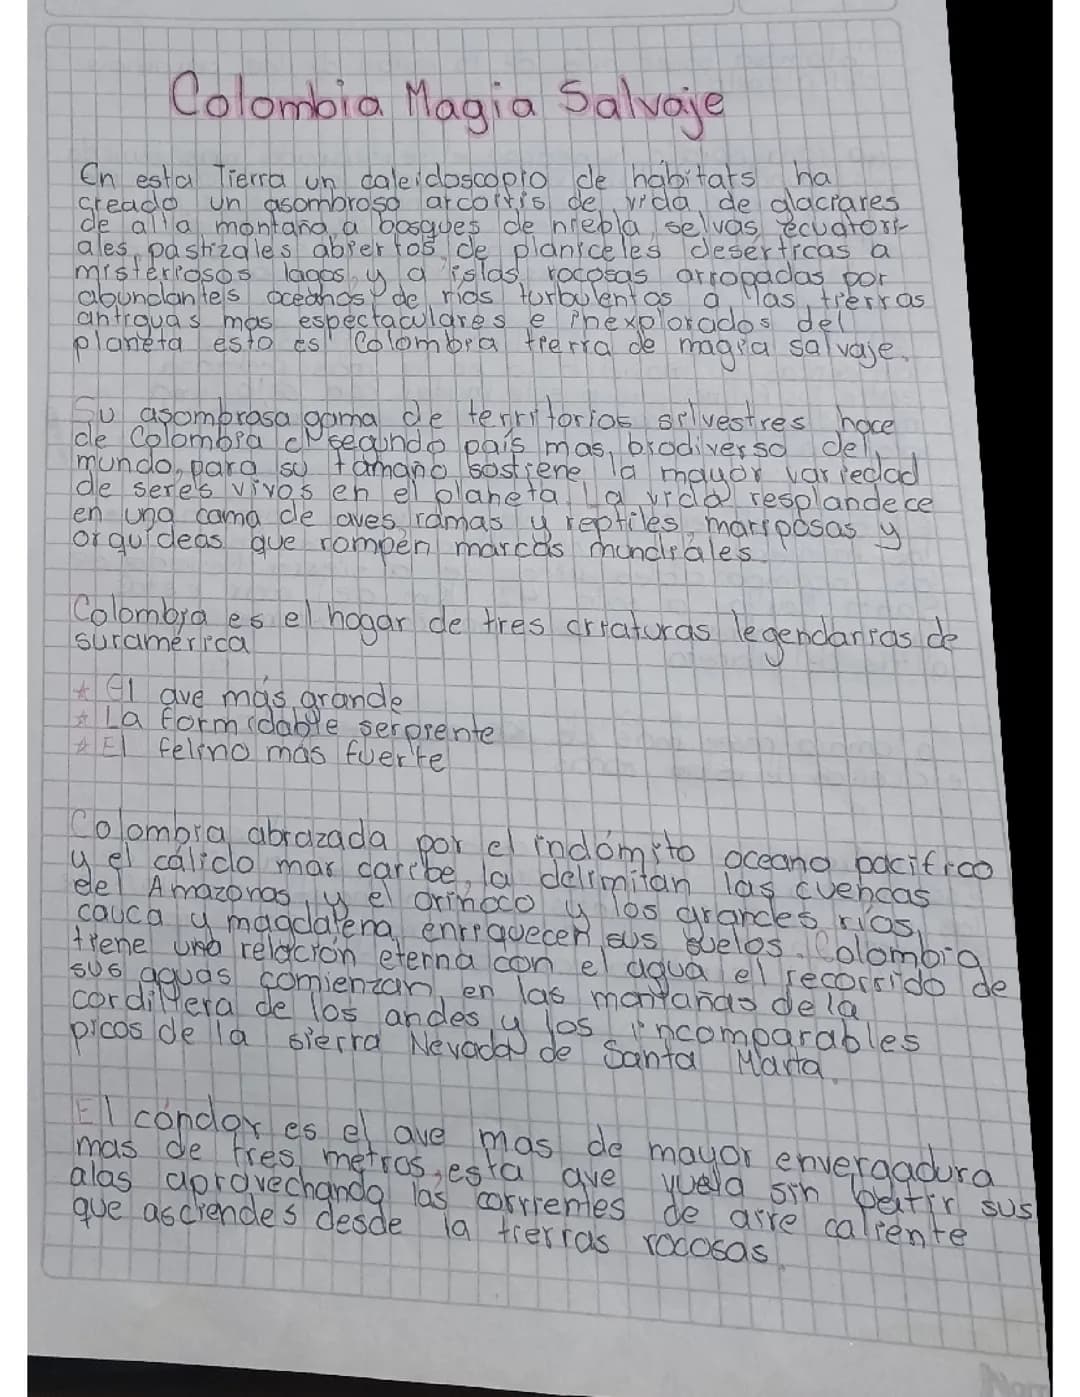 Colombia Magia Salvaje
En esta Tierra un caleidoscopio de hábitats ha
creado un asombroso arcoiris de vida de glaciares
de alta montaña a bosques de niebla, selvas, ecuatori-
ales, pastizales abiertos, de planiceles deserticas a
misteriosos lagos y a islas rocosas arropadas por
abundantes oceanos de rios turbulentos a las tierras
antiguas mas espectaculares e inexplorados del
planeta esto es Colombia tierra de magia salvaje.
Su asombrosa gama de territorios silvestres hace
de Colombia el segundo país mas, biodiverso del
mundo, para su tamano sostiene la mayor variedad
de seres vivos en el planeta la vida resplandece
en una cama de aves ramas y reptiles, mariposas y
orquideas que rompen marcas mundiales
Colombia es el hogar de tres criaturas legendarias de
suramérica
* El ave más grande
* La formidable serpiente
* El felino más fuerte
Colombia abrazada por el indómito oceano pacifico
y el cálido mar caribe, la delimitan las cuencas
del Amazonas, y el orinoco y los grandes rios,
cauca y magdalena enriquecen sus suelos. Colombia
tiene una relación eterna con el agua el recorrido de
sus aguas comienzan en las montañas de la
cordillera de los andes y los incomparables
picos de la sierra Nevada de Santa Marta.
El cóndor es el ave mas de mayor envergadura
mas de tres metros, esta ave vuela sin batir sus
alas aprovechando las corrientes de aire caliente
que asciendes desde la tierras rocosas.